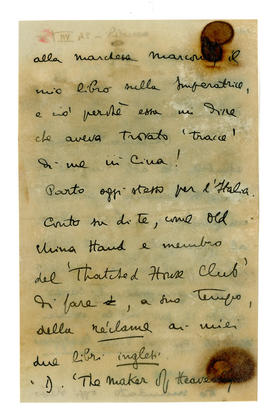 alla marchesa Marconi il
mio libro sulla Imperatrice,
e ciò perchè essa mi disse
che aveva trovato 'tracce'
di me in Cina!
Parto oggi stesso per l'Italia.
Conto su di te, come Old
China Hand e membro
del 'Thatched House Club'
di fare, a suo tempo,
della réclame ai miei
due libri inglesi.
1). 'The Maker of Heavenly